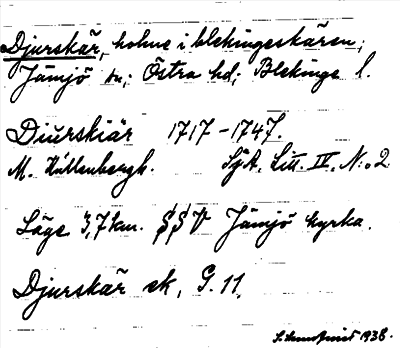 Djurskär, holme i blekingeskären;
Jämjö sn; Östra hd; Blekinge l.
Diurskiär 1717-1747.
M. Källenbergh. Sjk. Litt. IV, N:o 2
Läge 3,7 km. SSV Jämjö kyrka.
Djurskär ek, G. 11.
1938.